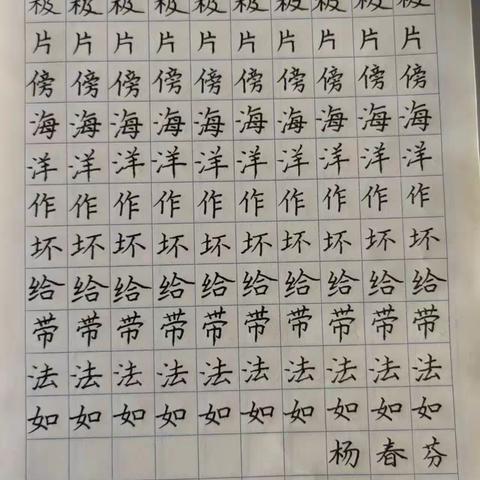 极极极极极极极极极极
片片片片片片片片片片
傍傍傍傍傍傍傍傍傍傍
海海海海海海海海海海
洋洋洋洋洋洋洋洋洋洋
作作作作作作作作作作
坏坏坏坏坏坏坏坏坏坏
给给给给给给给给给给
带带带带带带带带带带
法法法法法法法法法法
如如如如如如如如如如
杨春芬